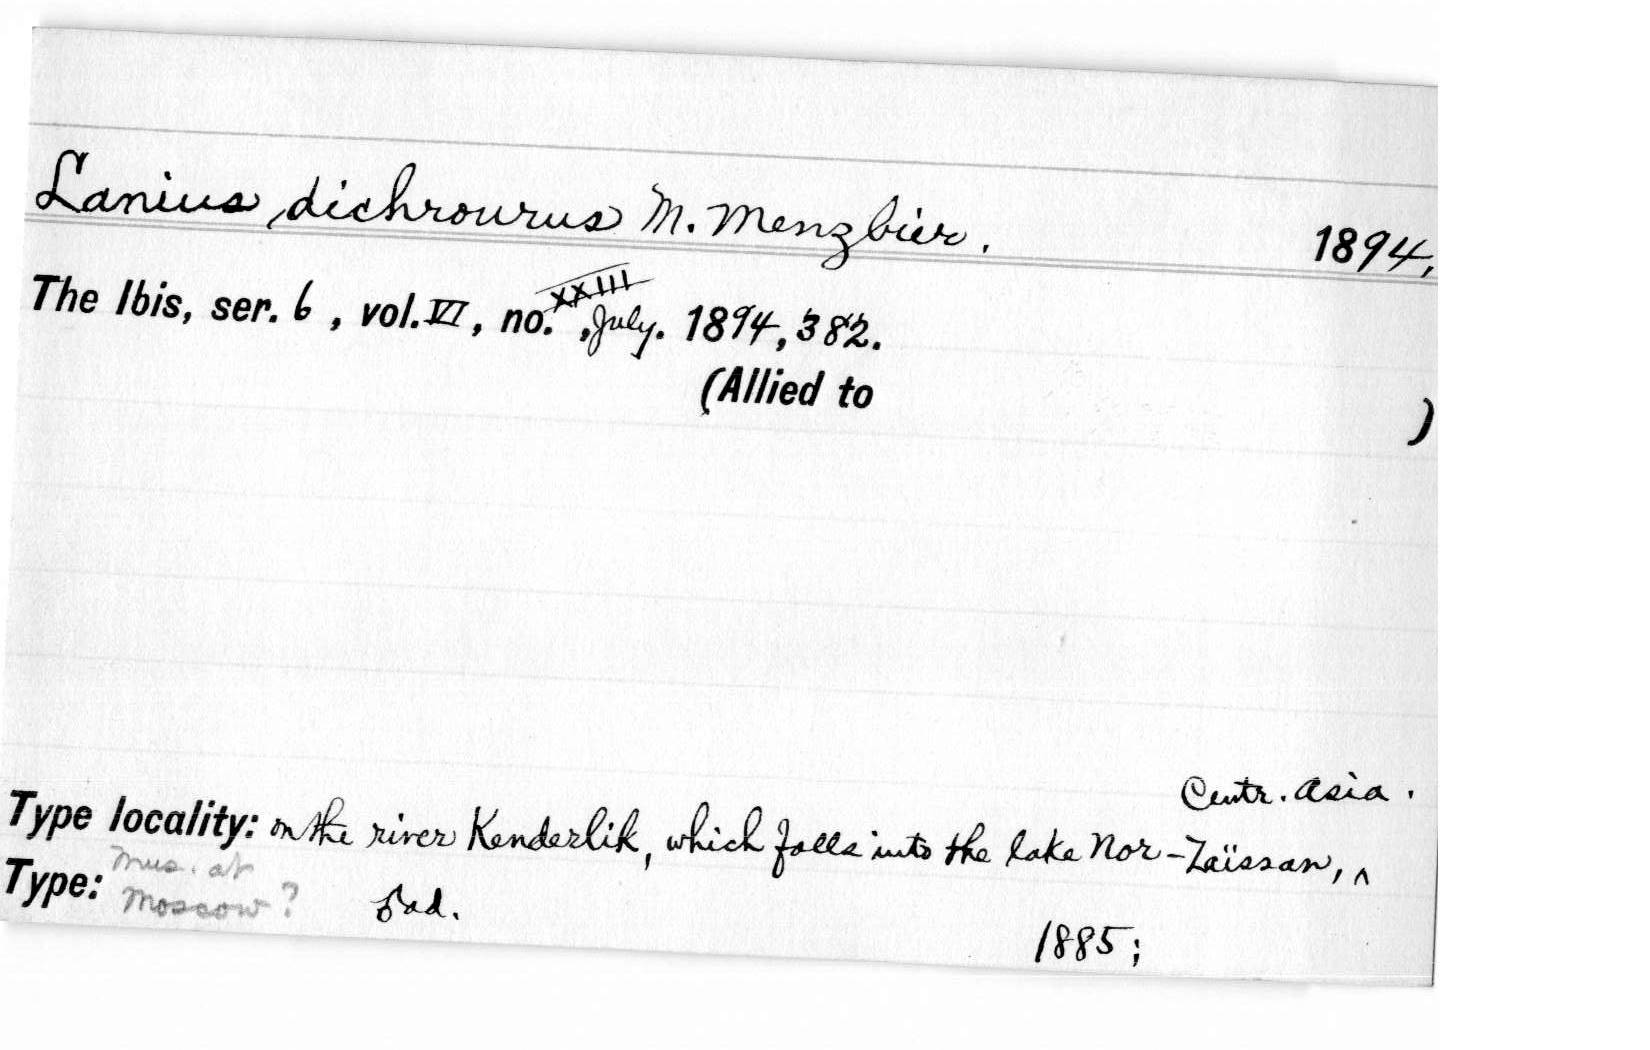 Lanius dichrourus M. Menzbier. 1894.
The Ibis, ser. 6, vol. VI, no. XXIII, July. 1894, 382.
(Allied to )
Centr. Asia.
Type locality: on the river Kenderlik, which falls into the lake Nor-Zaïssan, ^
Type: Mus. at
Moscow? ad.
1885;